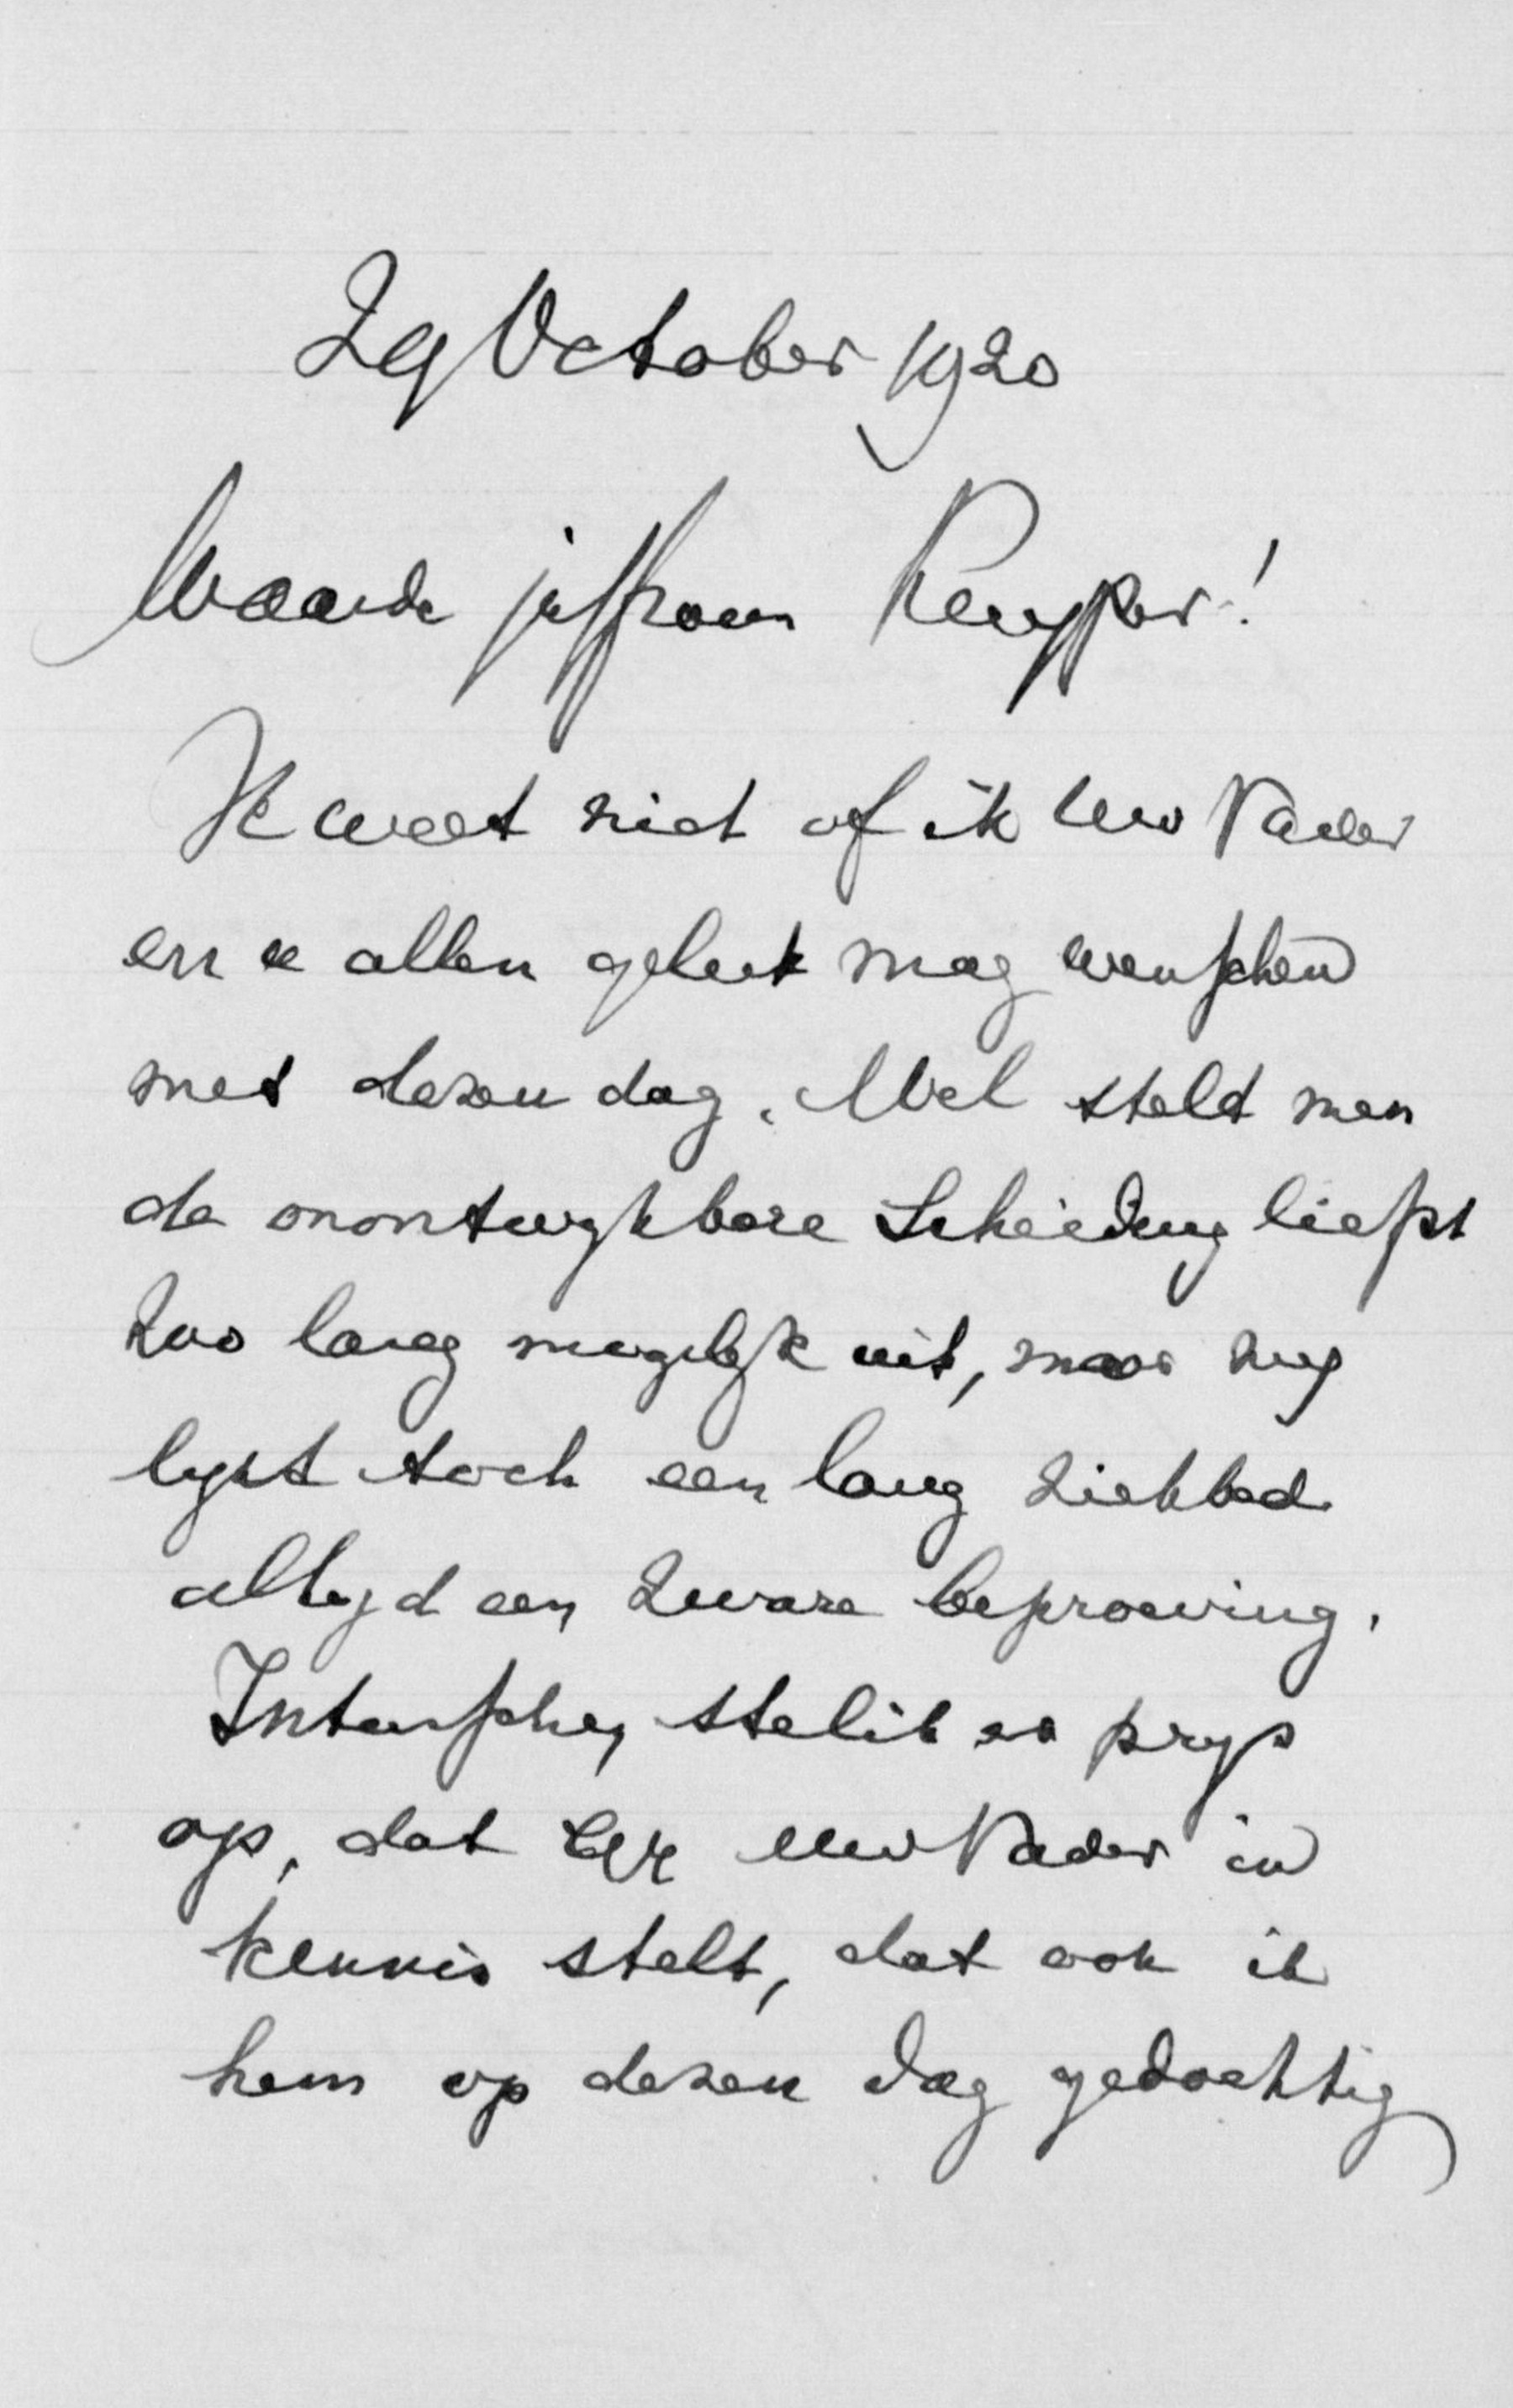 29 October 1920
Waarde juffrouw Kuyper!
Ik weet niet of ik Uw Vader
en u allen geluk mag wenschen
met dezen dag. Wel stelt men
de onontwijkbare Scheiding liefst
zoo lang mogelijk uit, maar
lijkt toch een lang ziekbed
altijd een zware beproeving.
Intusschen stel ik er prijs
op, dat Uw Vader in
kennis stelt, dat ook ik
hem op dezen dag gedachtig